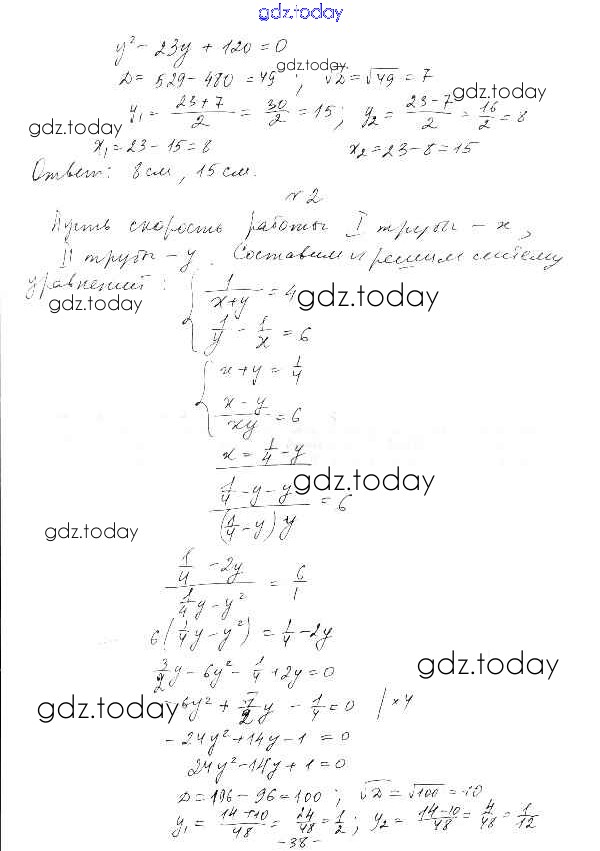 gdz.today
y² - 23y + 120 = 0
gdz.today
D = 529 - 480 = 49 ; √D = √49 = 7
gdz.today
y₁ = (23+7)/2 = 30/2 = 15 ; y₂ = (23-7)/2 = 16/2 = 8
gdz.today
x₁ = 23 - 15 = 8 x₂ = 23 - 8 = 15
Ответ: 8 см, 15 см.
№ 2
Пусть скорость работы I трубы - x,
II трубы - y. Составим и решим систему
уравнений: { 1/(x+y) = 4
gdz.today gdz.today
1/y - 1/x = 6
{ x + y = 1/4
(x - y)/(xy) = 6
x = 1/4 - y
gdz.today
(1/4 - y - y)/((1/4 - y) y) = 6
gdz.today
(1/4 - 2y)/(1/4 y - y²) = 6/1
6(1/4 y - y²) = 1/4 - 2y
gdz.today
3/2 y - 6y² - 1/4 + 2y = 0
gdz.today
- 6y² + 7/2 y - 1/4 = 0 | ×4
- 24y² + 14y - 1 = 0
24y² - 14y + 1 = 0
D = 196 - 96 = 100 ; √D = √100 = 10
y₁ = (14+10)/48 = 24/48 = 1/2 ; y₂ = (14-10)/48 = 4/48 = 1/12
- 38 -